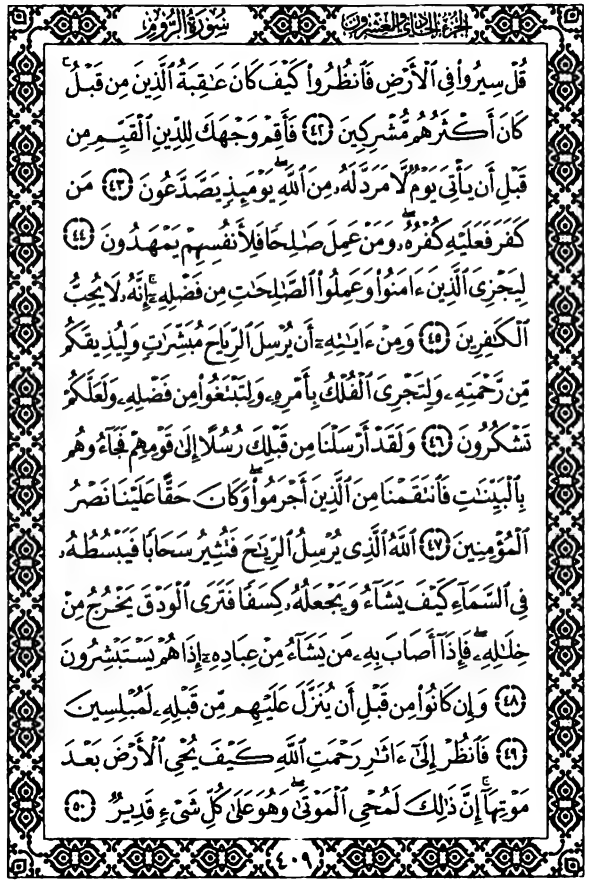 سُورَةُ الرُّومِ الجُزْءُ الحَادِي وَالعِشْرُونَ
قُلْ سِيرُوا۟ فِى ٱلْأَرْضِ فَٱنظُرُوا۟ كَيْفَ كَانَ عَٰقِبَةُ ٱلَّذِينَ مِن قَبْلُ ۚ
كَانَ أَكْثَرُهُم مُّشْرِكِينَ ٤٢ فَأَقِمْ وَجْهَكَ لِلدِّينِ ٱلْقَيِّمِ مِن
قَبْلِ أَن يَأْتِىَ يَوْمٌ لَّا مَرَدَّ لَهُۥ مِنَ ٱللَّهِ ۖ يَوْمَئِذٍ يَصَّدَّعُونَ ٤٣ مَن
كَفَرَ فَعَلَيْهِ كُفْرُهُۥ ۖ وَمَنْ عَمِلَ صَٰلِحًا فَلِأَنفُسِهِمْ يَمْهَدُونَ ٤٤
لِيَجْزِىَ ٱلَّذِينَ ءَامَنُوا۟ وَعَمِلُوا۟ ٱلصَّٰلِحَٰتِ مِن فَضْلِهِۦٓ ۚ إِنَّهُۥ لَا يُحِبُّ
ٱلْكَٰفِرِينَ ٤٥ وَمِنْ ءَايَٰتِهِۦٓ أَن يُرْسِلَ ٱلرِّيَاحَ مُبَشِّرَٰتٍ وَلِيُذِيقَكُم
مِّن رَّحْمَتِهِۦ وَلِتَجْرِىَ ٱلْفُلْكُ بِأَمْرِهِۦ وَلِتَبْتَغُوا۟ مِن فَضْلِهِۦ وَلَعَلَّكُمْ
تَشْكُرُونَ ٤٦ وَلَقَدْ أَرْسَلْنَا مِن قَبْلِكَ رُسُلًا إِلَىٰ قَوْمِهِمْ فَجَآءُوهُم
بِٱلْبَيِّنَٰتِ فَٱنتَقَمْنَا مِنَ ٱلَّذِينَ أَجْرَمُوا۟ ۖ وَكَانَ حَقًّا عَلَيْنَا نَصْرُ
ٱلْمُؤْمِنِينَ ٤٧ ٱللَّهُ ٱلَّذِى يُرْسِلُ ٱلرِّيَٰحَ فَتُثِيرُ سَحَابًا فَيَبْسُطُهُۥ
فِى ٱلسَّمَآءِ كَيْفَ يَشَآءُ وَيَجْعَلُهُۥ كِسَفًا فَتَرَى ٱلْوَدْقَ يَخْرُجُ مِنْ
خِلَٰلِهِۦ ۖ فَإِذَآ أَصَابَ بِهِۦ مَن يَشَآءُ مِنْ عِبَادِهِۦٓ إِذَا هُمْ يَسْتَبْشِرُونَ
٤٨ وَإِن كَانُوا۟ مِن قَبْلِ أَن يُنَزَّلَ عَلَيْهِم مِّن قَبْلِهِۦ لَمُبْلِسِينَ
٤٩ فَٱنظُرْ إِلَىٰٓ ءَاثَٰرِ رَحْمَتِ ٱللَّهِ كَيْفَ يُحْىِ ٱلْأَرْضَ بَعْدَ
مَوْتِهَآ ۚ إِنَّ ذَٰلِكَ لَمُحْىِ ٱلْمَوْتَىٰ ۖ وَهُوَ عَلَىٰ كُلِّ شَىْءٍ قَدِيرٌ ٥٠
٤٠٩